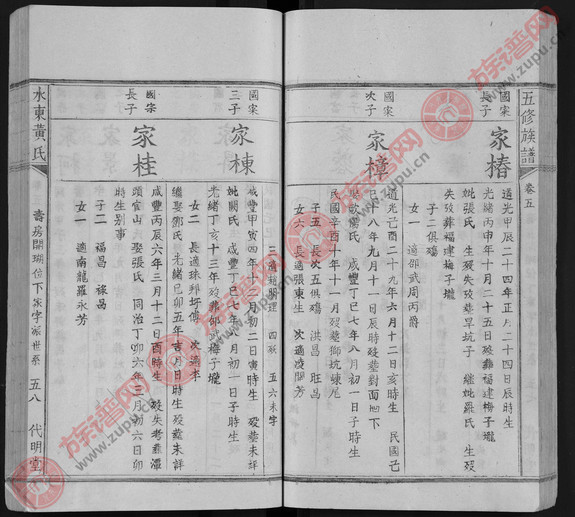 五修族譜
卷五
國宷
長子
家椿
道光甲辰二十四年正月二十四日辰時生
光緒丙申年十月二十五日歿葬福建梅子壠
妣張氏 生歿葬旱坑子 繼妣羅氏 生歿
失歿葬福建梅子壠
子二俱殤
女一 適邵武周丙爵
國宷
次子
家樟
道光己酉二十九年六月十二日亥時生 民國己
八年九月十一日辰時歿葬對面
氏 咸豐丁巳七年八月初一日子時生
民國辛酉十年十一月歿葬獅坑
子五 長次五俱殤 洪昌 旺昌
女六 長適張東生 次適凌開芳
三適趙 四 五六未字
國宷
三子
家棟
咸豐甲寅四年 月初二日寅時生 歿葬未詳
妣闕氏 咸豐丁巳七年 月初一日子時生
光緒丁亥十三年歿葬 梅子壠
女二 長適珠邦圩傅 次適李
繼娶鄧氏 光緒己卯五年吉月日時生歿葬未詳
國宷
長子
家桂
咸豐丙辰六年三月十二日酉時生 歿失考葬潭
頭官山 娶張氏 同治丁卯六年三月初六日卯
時生 別事
子二 福昌 祿昌
女一 適南龍羅永芳
水東黃氏
書房開瑚位下家字派世系
五八
代明堂
族谱网
www.zupu.cn